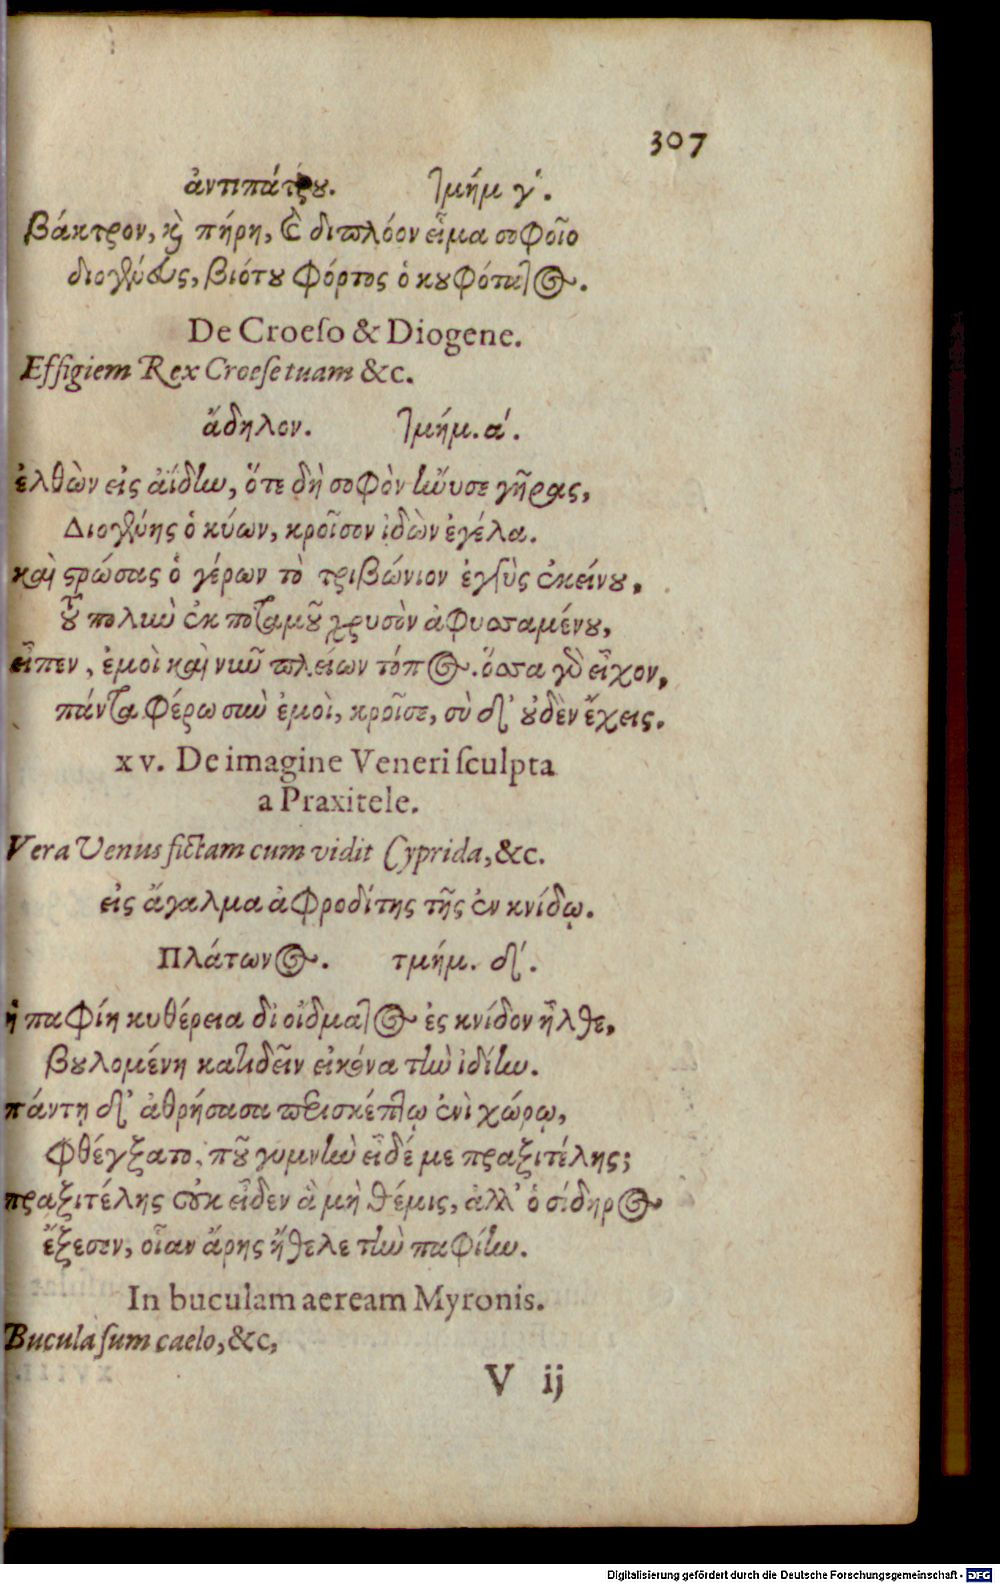 307
ἀντιπάτρου. τμήμ γʹ.
βάκτρον, καὶ πήρη, καὶ διπλόον εἷμα σοφοῖο
διογένευς, βιότου φόρτος ὁ κουφότατος.
De Croeſo & Diogene.
Effigiem Rex Croeſe tuam &c.
ἄδηλον. τμήμ. αʹ.
ἐλθὼν εἰς ἀΐδην, ὅτε δὴ σοφὸν ἤνυσε γῆρας,
Διογένης ὁ κύων, κροῖσον ἰδὼν ἐγέλα.
καὶ στρώσας ὁ γέρων τὸ τριβώνιον ἐγγὺς ἐκείνου,
τοῦ πολὺν ἐκ ποταμοῦ χρυσὸν ἀφυσσαμένου,
εἶπεν, ἐμοὶ καὶ νῦν πλείων τόπος. ὅσσα γὰρ εἶχον,
πάντα φέρω σὺν ἐμοὶ, κροῖσε, σὺ δʼ οὐδὲν ἔχεις.
xv. De imagine Veneri ſculpta
a Praxitele.
Vera Venus fictam cum vidit Cyprida, &c.
εἰς ἄγαλμα ἀφροδίτης τῆς ἐν κνίδῳ.
Πλάτωνος. τμήμ. δʹ.
ἡ παφίη κυθέρεια διʼ οἶδματος ἐς κνίδον ἦλθε,
βουλομένη κατιδεῖν εἰκόνα τὴν ἰδίην.
πάντῃ δʼ ἀθρήσασα περισκέπτῳ ἐνὶ χώρῳ,
φθέγξατο, ποῦ γυμνὴν εἶδέ με πραξιτέλης;
πραξιτέλης οὐκ εἶδεν ἃ μὴ θέμις, ἀλλʼ ὁ σίδηρος
ἔξεσεν, οἷαν ἄρης ἤθελε τὴν παφίην.
In buculam aeream Myronis.
Bucula ſum caelo, &c,
V ij
Digitalisierung gefördert durch die Deutsche Forschungsgemeinschaft - DFG